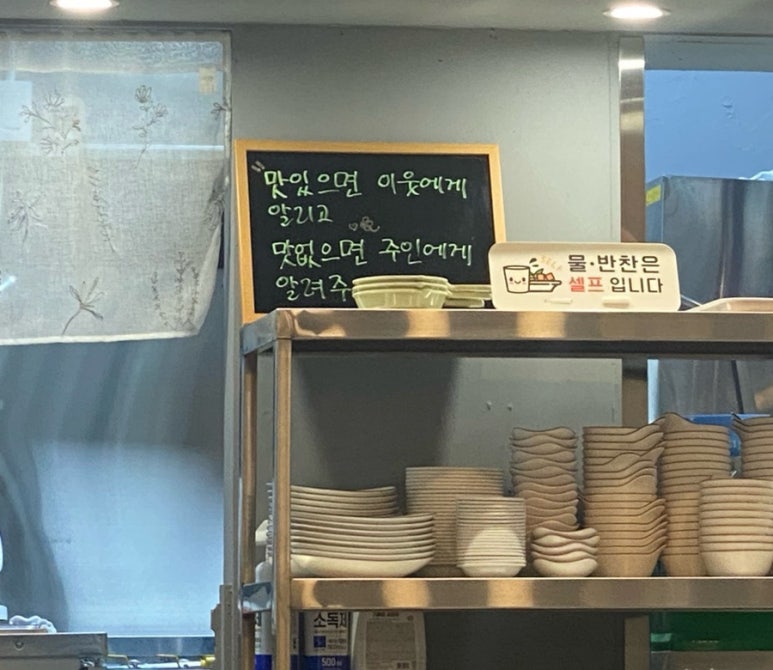 "맛있으면 이웃에게
알리고
맛없으면 주인에게
알려주
SELF
물·반찬은
셀프 입니다
소독제
500㎖